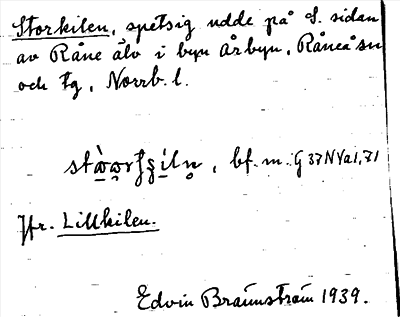 Storkilen, spetsig udde på S. sidan
av Råne älv i byn Årbyn, Råneå sn
och tg, Norrb. l.
bf. m. G 37 N Ya1, 71
Jfr. Lillkilen.
Edvin Brännström 1939.